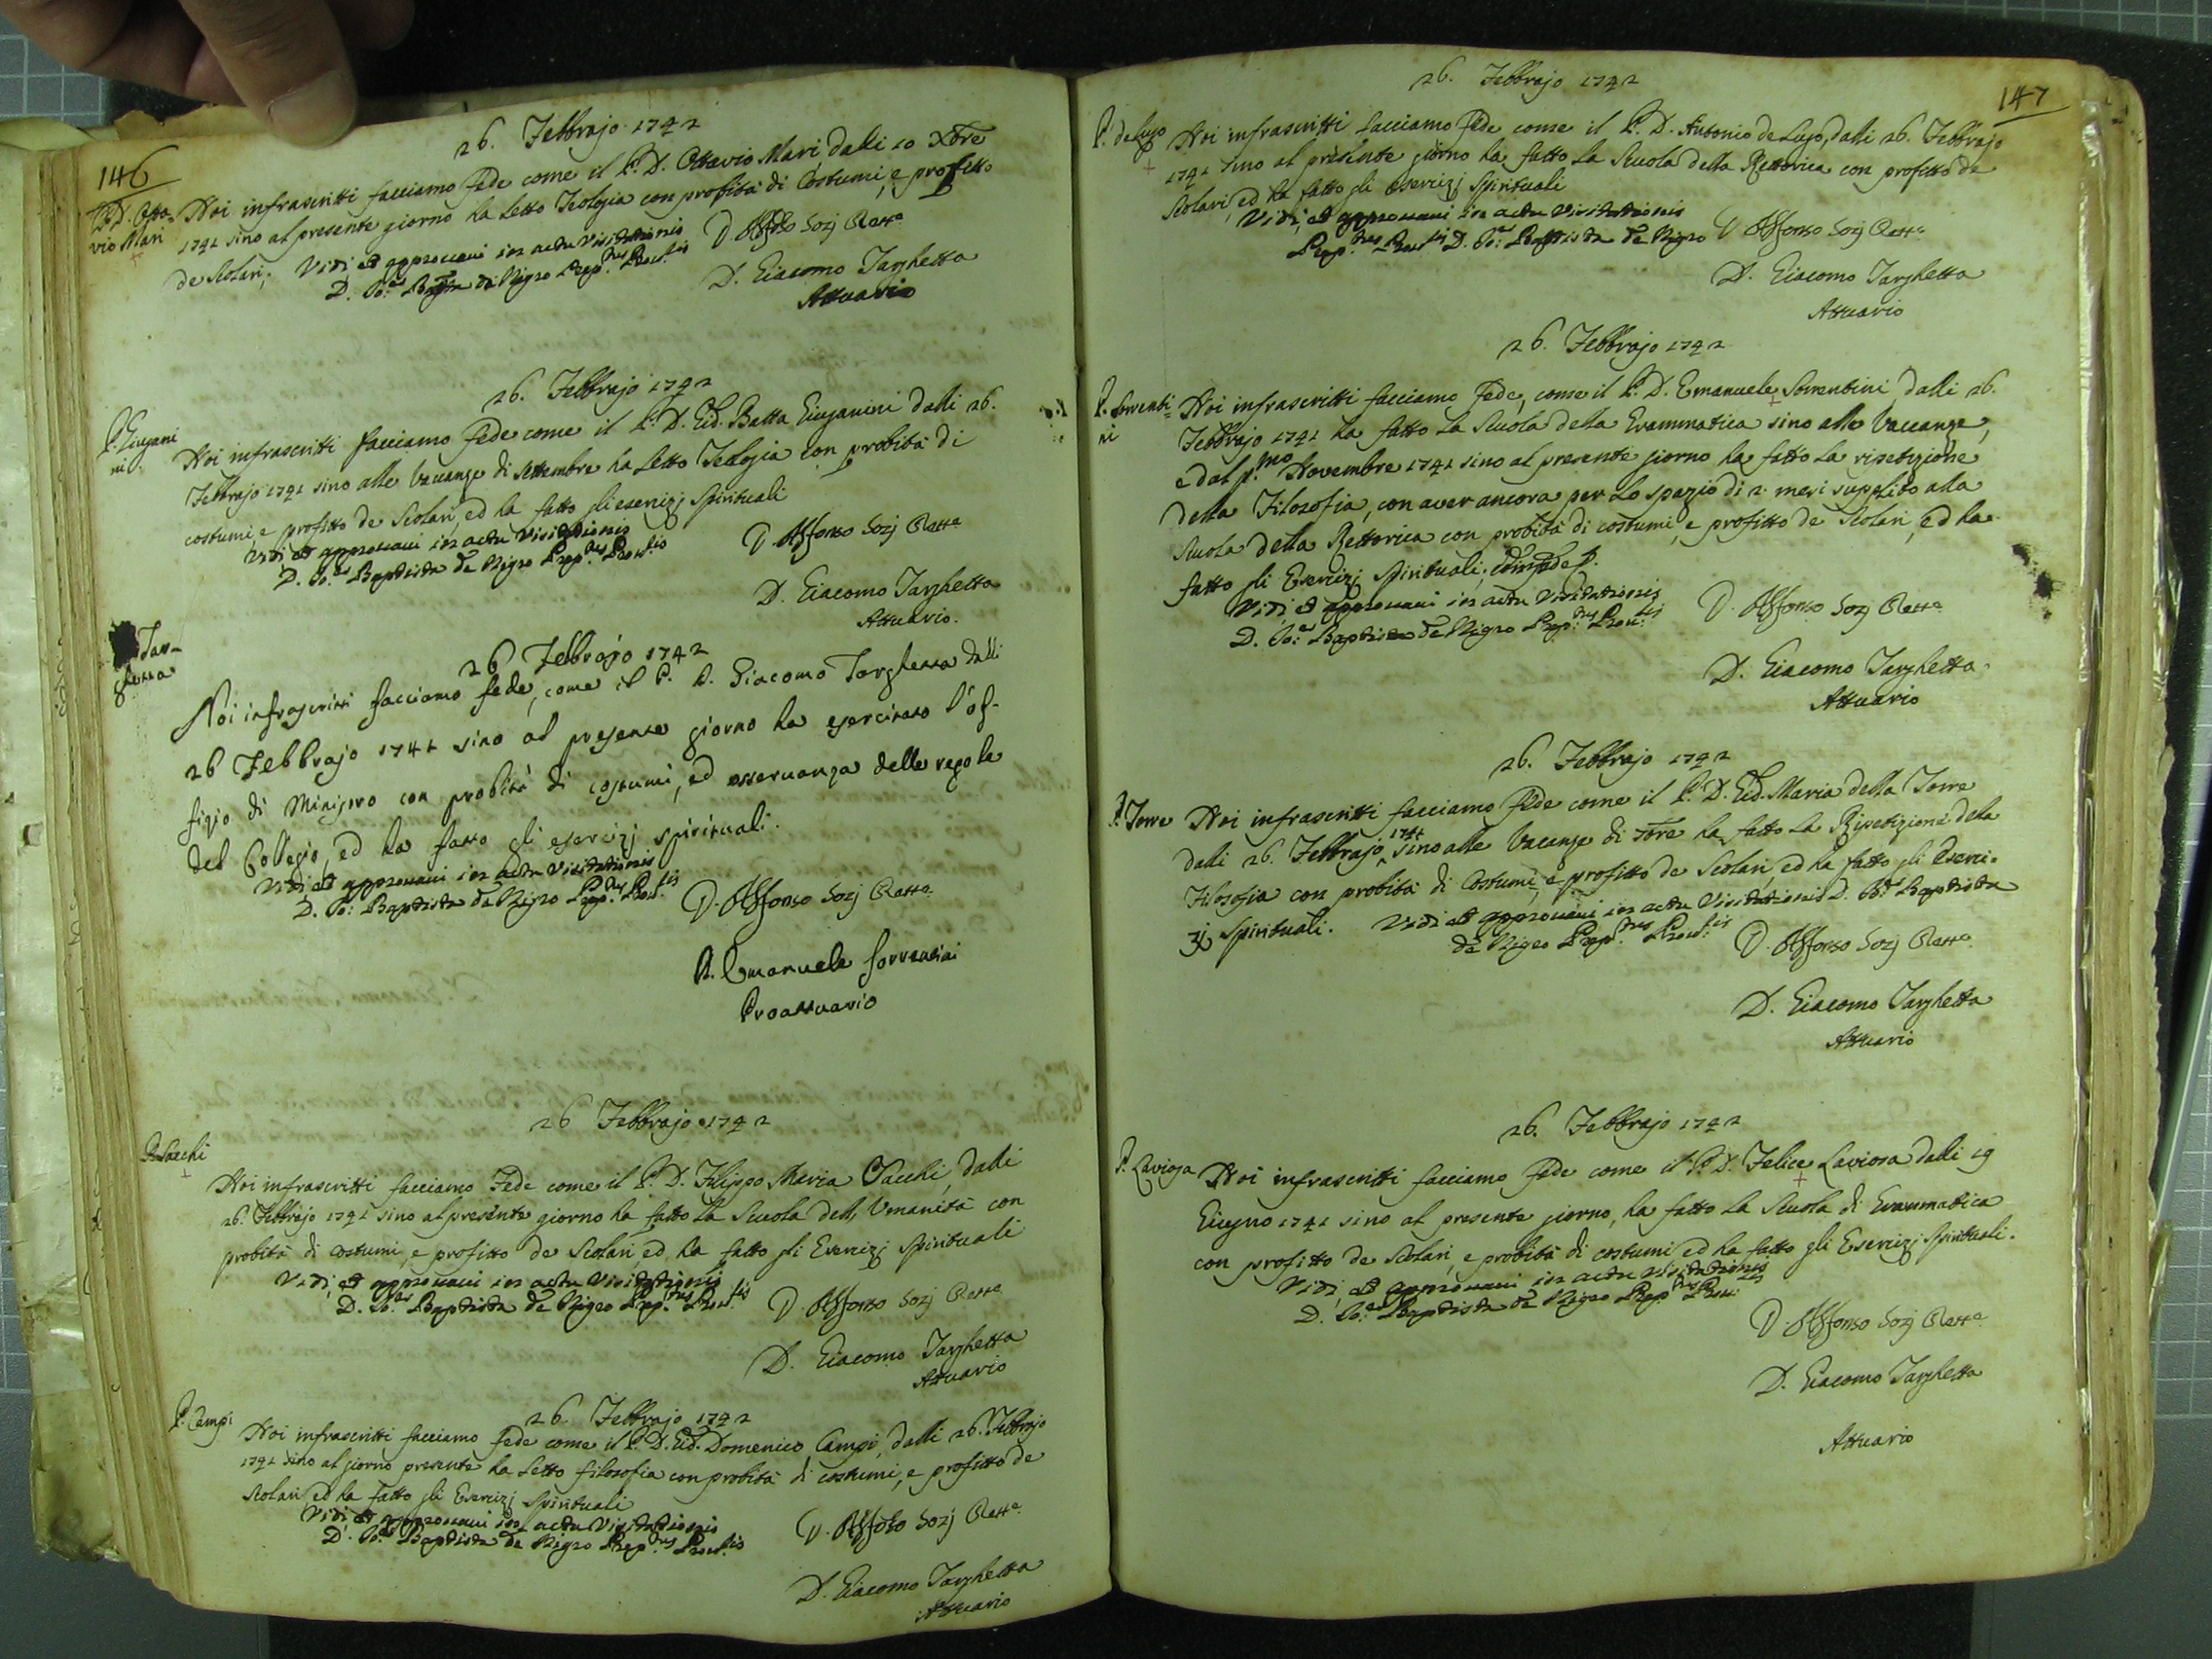 146
26. Febbrajo 1742
P. D. Otta-
vio Mari
Noi infrascritti facciamo Fede come il P. D. Ottavio Mari, dalli 10 Xbre
1741 sino al presente giorno ha letto Teologia con probità di Costumi, e profitto
de Scolari;
Vidi, et approvavi in actu visitationis
D. Jo: Bapta de Nigro Prep.tus Prov.lis
D. Alfonso Sozj Rett.e
D. Giacomo Targhetta
Attuario
26. Febbrajo 1742
P. Giugani
ni
Noi infrascritti facciamo Fede come il P. D. Gio. Batta Giuganini dalli 26.
Febbrajo 1741 sino alle Vacanze di Settembre ha letto Teologia con probità di
costumi, e profitto de Scolari, ed ha fatto gli esercizj Spirituali
Vidi et approvavi in actu Visitationis
D. Jo:es Baptista de Nigro Prep.tus Prov.lis
D. Alfonso Sozj Rett.e
D. Giacomo Targhetta
Attuario.
Tar-
ghetta
26 Febbrajo 1742
Noi infrascritti facciamo fede, come il P. D. Giacomo Targhetta dalli
26 Febbrajo 1741 sino al presente giorno ha esercitato l'of-
fizio di Ministro con probità di costumi, ed osservanza delle regole
del Collegio, ed ha fatto gli esercizj spirituali.
Vidi et approvavi in actu Visitationis
D. Jo: Baptista de Nigro Prep.tus Prov.lis
D. Alfonso Sozj Rett.e
D. Emanuele Sorrentini
Proattuario
26 Febbrajo 1742
P. Sacchi
Noi infrascritti facciamo Fede come il P. D. Filippo Maria Sacchi, dalli
26. Febbrajo 1741 sino al presente giorno ha fatto la Scuola dell'Umanità con
probità di costumi, e profitto de Scolari, ed ha fatto gli Esercizj Spirituali
Vidi, et approvavi in actu Visitationis
D. Jo:es Baptista de Nigro Prep.tus Prov.lis
D. Alfonso Sozj Rett.e
D. Giacomo Targhetta
Attuario
26. Febbrajo 1742
P. Campi
Noi infrascritti facciamo fede come il P. D. Gio. Domenico Campi, dalli 26. Febbrajo
1741 sino al giorno presente ha letto filosofia con probità di costumi, e profitto de
Scolari ed ha fatto gli Esercizj Spirituali
Vidi et approvavi in actu Visitationis
D. Jo:es Baptista de Nigro Prep.tus Prov.lis
D. Alfonso Sozj Rett.e
D. Giacomo Targhetta
Attuario
147
26. Febbrajo 1742
P. de Lugo
Noi infrascritti facciamo Fede come il P. D. Antonio de Lugo, dalli 26. Febbrajo
1741 sino al presente giorno ha fatto la Scuola della Rettorica con profitto de
Scolari, ed ha fatto gli esercizj Spirituali
Vidi, et approvavi in actu Visitationis
Prep.tus Prov.lis D. Jo: Baptista de Nigro
D. Alfonso Sozj Rett.e
D. Giacomo Targhetta
Attuario
26. Febbrajo 1742
P. Sorrenti=
ni
Noi infrascritti facciamo Fede, come il P. D. Emanuele Sorrentini, dalli 26.
Febbrajo 1741 ha fatto la Scuola della Grammatica sino alle Vaccanze,
e dal p.mo Novembre 1741 sino al presente giorno ha fatto la ripetizione
della Filosofia, con aver ancora per lo spazio di 2 mesi supplito alla
Scuola della Rettorica con probità di costumi, e profitto de Scolari, ed ha
fatto gli Esercizj Spirituali.
Vidi, et approvavi in actu Visitationis
D. Jo:es Baptista de Nigro Prep.tus Prov.lis
D. Alfonso Sozj Rett.e
D. Giacomo Targhetta
Attuario
26. Febbrajo 1742
P. Torre
Noi infrascritti facciamo Fede come il P. D. Gio. Maria della Torre
dalli 26. Febbrajo 1741 sino alle Vacanze di 7bre ha fatto la Ripetizione della
Filosofia con probità di Costumi, e profitto de Scolari, ed ha fatto gli Eserci-
zj Spirituali.
Vidi et approvavi in actu Visitationis D. Jo: Baptista
de Nigro Prep.tus Prov.lis
D. Alfonso Sozj Rett.e
D. Giacomo Targhetta
Attuario
26. Febbrajo 1742
P. Laviosa
Noi infrascritti facciamo Fede come il P. D. Felice Laviosa dalli 19
Giugno 1741 sino al presente giorno, ha fatto la Scuola di Grammatica
con profitto de Scolari, e probità di costumi ed ha fatto gli Esercizj Spirituali.
Vidi, et approvavi in actu visitationis
D. Jo:es Baptista de Nigro Prep.tus Prov.lis
D. Alfonso Sozj Rett.e
D. Giacomo Targhetta
Attuario